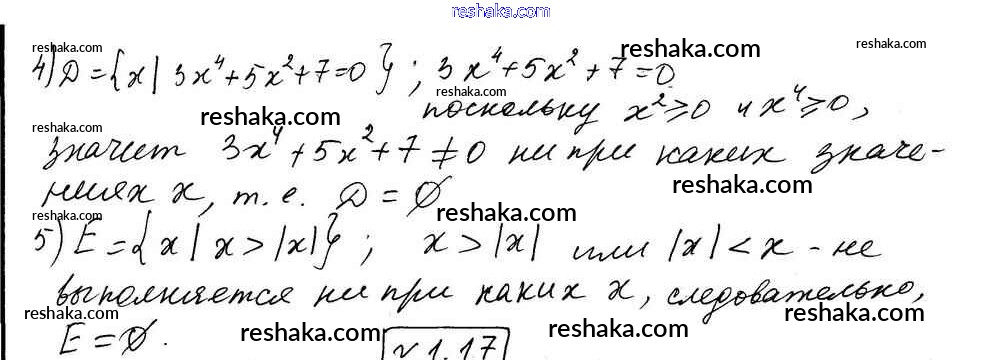 reshaka.com
reshaka.com reshaka.com reshaka.com
4) D={x| 3x⁴+5x²+7=0}; 3x⁴+5x²+7=0
reshaka.com
reshaka.com поскольку x²≥0 и x⁴≥0,
reshaka.com
значит 3x⁴+5x²+7≠0 ни при каких значе-
ниях x, т.е. D=∅ reshaka.com
reshaka.com reshaka.com
5) E={x| x>|x|}; x>|x| или |x|<x - не
выполняется ни при каких x, следовательно,
reshaka.com reshaka.com reshaka.com reshaka.com
E=∅. №1.17